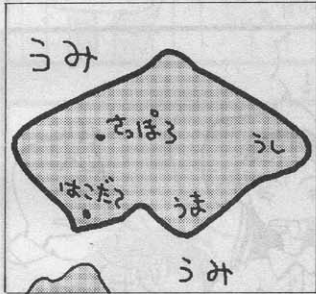 うみ
さっぽろ
うし
はこだて
うま
うみ